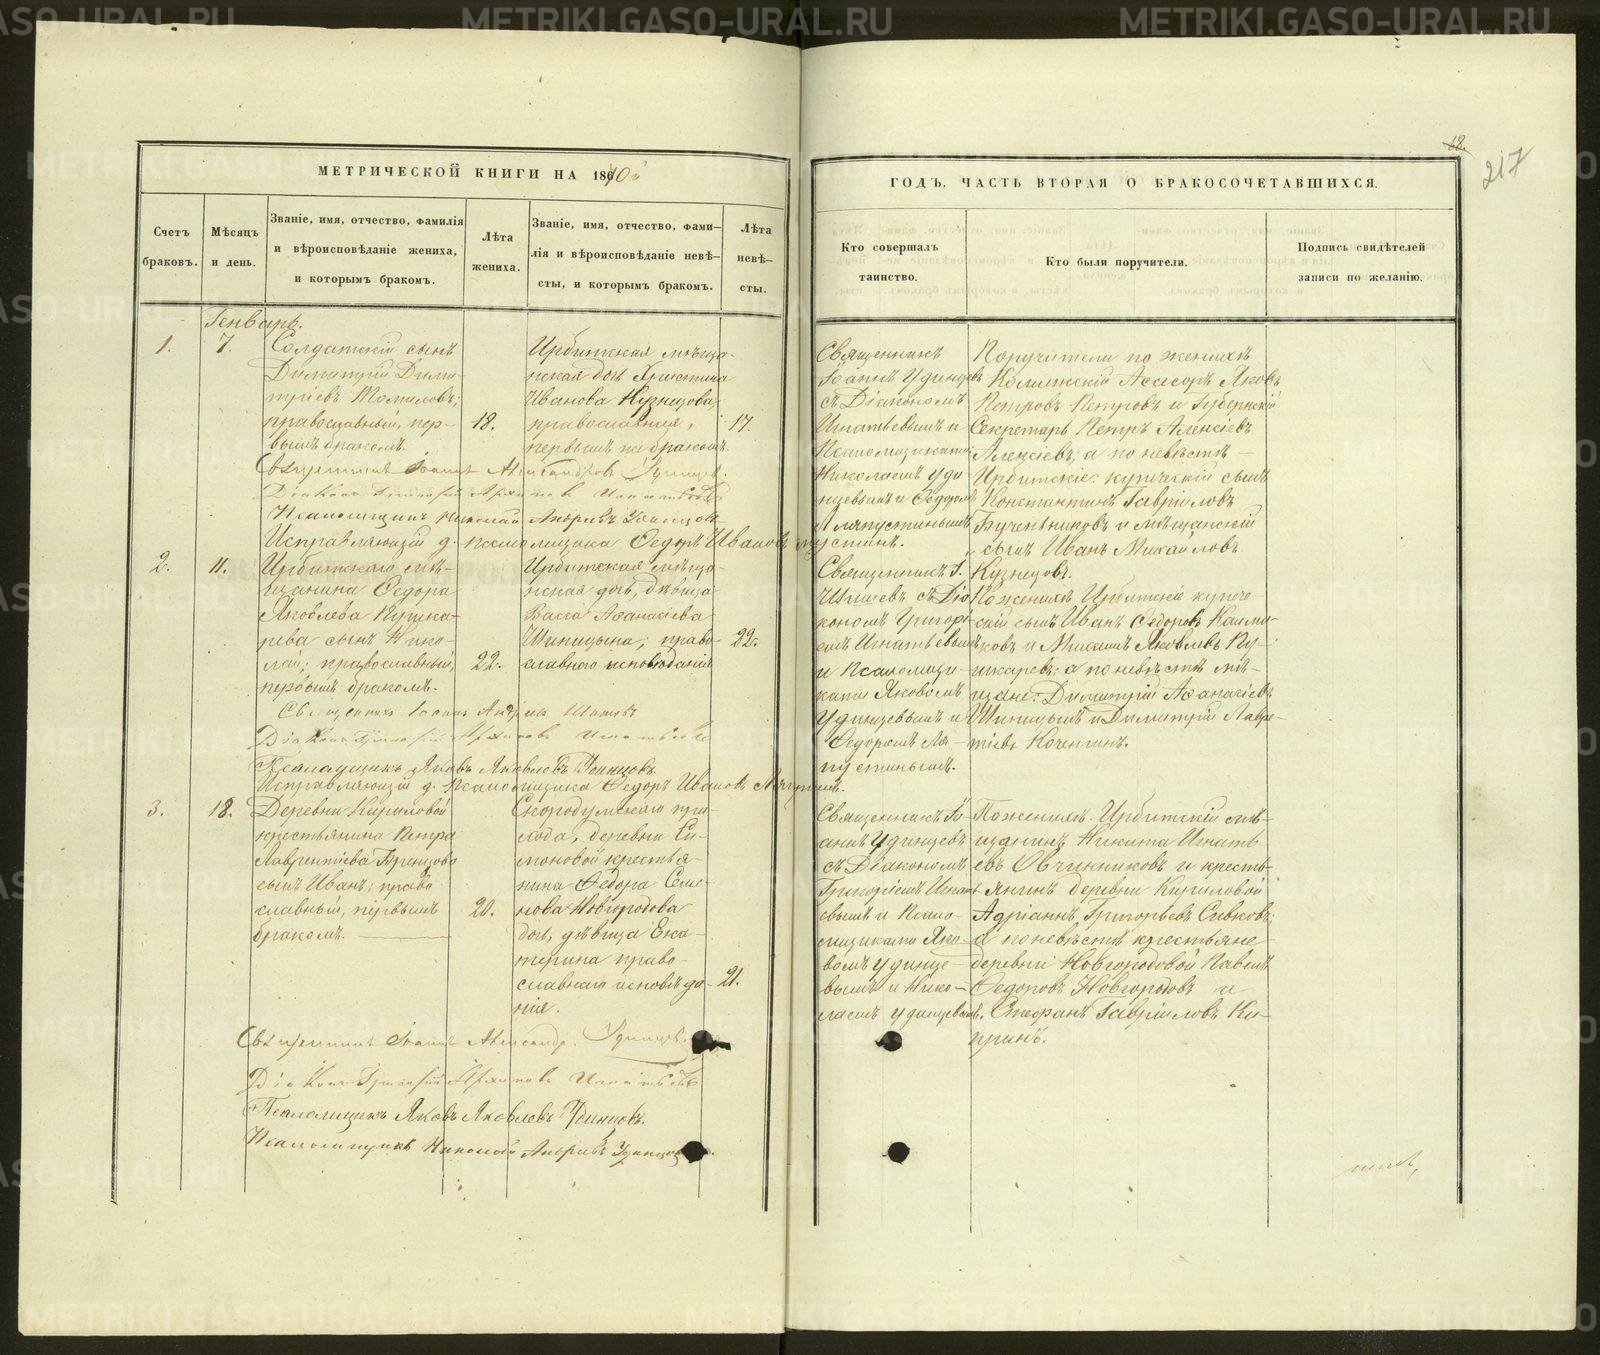 МЕТРИЧЕСКОЙ КНИГИ НА 1870й
ГОДЪ, ЧАСТЬ ВТОРАЯ О БРАКОСОЧЕТАВШИХСЯ.
68.
217
Счетъ
браковъ.
Мѣсяцъ
и день.
Званіе, имя, отчество, фамилія
и вѣроисповѣданіе жениха,
и которымъ бракомъ.
Лѣта
жениха.
Званіе, имя, отчество, фами–
лія и вѣроисповѣданіе невѣ–
сты, и которымъ бракомъ.
Лѣта
невѣ–
сты.
Кто совершалъ
таинство.
Кто были поручители.
Подпись свидѣтелей
записи по желанію.
Генварь.
1.
7.
Солдатскій сынъ
Димитрій Дими-
тріевъ Томиловъ;
православный, пер-
вымъ бракомъ.
18.
Ирбитская мѣща-
нская дочь Христина
Иванова Кузнецова
православная,
первымъ же бракомъ.
17.
Священникъ
Іоаннъ Удинцевъ
съ Діакономъ
Игнатьевымъ и
Псаломщиками
Николаемъ Уди-
нцевымъ и Ѳедоромъ
Ляпустинымъ
Поручители по женихѣ
Коллежскій Асесоръ Яковъ
Петровъ Петровъ и Губернскій
Секретарь Петръ Алексѣевъ
Алексѣевъ; а по невѣстѣ —
Ирбитскіе: купеческій сынъ
Константинъ Гавріиловъ
Бученниковъ и мѣщанскій
сынъ Иванъ Михайловъ
Кузнецовъ.
Священникъ Іоаннъ Александровъ Удинцевъ.
Діаконъ Григорій Архиповъ Игнатьевъ
Псаломщикъ Николай Андреевъ Удинцовъ
Исправляющій д. псаломщика Ѳедоръ Ивановъ Ляпустинъ.
2.
11.
Ирбитскаго мѣ-
щанина Ѳедора
Яковлева Пушка-
рева сынъ Нико-
лай; православный,
первымъ бракомъ.
22.
Ирбитская мѣща-
нская дочь, дѣвица
Васса Аѳанасіева
Шипицына; право-
славнаго исповѣданія
22.
Священникъ І.
Шишевъ съ Діа-
кономъ Григорі-
емъ Игнатьевымъ
и Псаломщи-
ками Яковомъ
Удинцевымъ и
Ѳедоромъ Ля-
пустинымъ.
По женихѣ Ирбитскіе купече-
скій сынъ Иванъ Ѳедоровъ Казми-
ковъ и Михаилъ Яковлевъ Пу-
шкаревъ; а по невѣстѣ мѣ-
щане: Димитрій Аѳанасіевъ
Шипицынъ и Димитрій Лавре-
нтіевъ Коченгинъ.
Діаконъ Григорій Архиповъ Игнатьевъ
Псаломщикъ Яковъ Яковлевъ Удинцовъ.
Исправляющій д. псаломщика Ѳедоръ Ивановъ Ляпустинъ.
3.
18.
Деревни Кириловой
крестьянина Петра
Лаврентіева Бренцова
сынъ Иванъ; право
славный, первымъ
бракомъ.
20.
Скородумскаго при-
хода, деревни Си-
моновой крестья-
нина Ѳедора Семе-
нова Новгородова
дочь, дѣвица Ека-
терина право-
славнаго исповѣда-
нія.
21.
Священникъ Іо-
аннъ Удинцевъ
съ Діакономъ
Григоріемъ Игнать-
евымъ и Псало-
мщиками Яко-
вомъ Удинце-
вымъ и Нико-
лаемъ Удинцевымъ.
По женихѣ: Ирбитскій мѣ-
щанинъ Никита Игнать-
евъ Овчинниковъ и кресть-
янинъ деревни Кириловой
Адріанъ Григорьевъ Сивковъ;
а по невѣстѣ крестьяне
деревни Новгородовой Павелъ
Ѳедоровъ Новгородовъ и
Стефанъ Гавріиловъ Ки-
принъ.
Священникъ Іоаннъ Александр. Удинцевъ.
Діаконъ Григорій Архиповъ Игнатьевъ
Псаломщикъ Яковъ Яковлевъ Удинцовъ.
Псаломщикъ Николай Андреевъ Удинцовъ.
METRIKI.GASO-URAL.RU